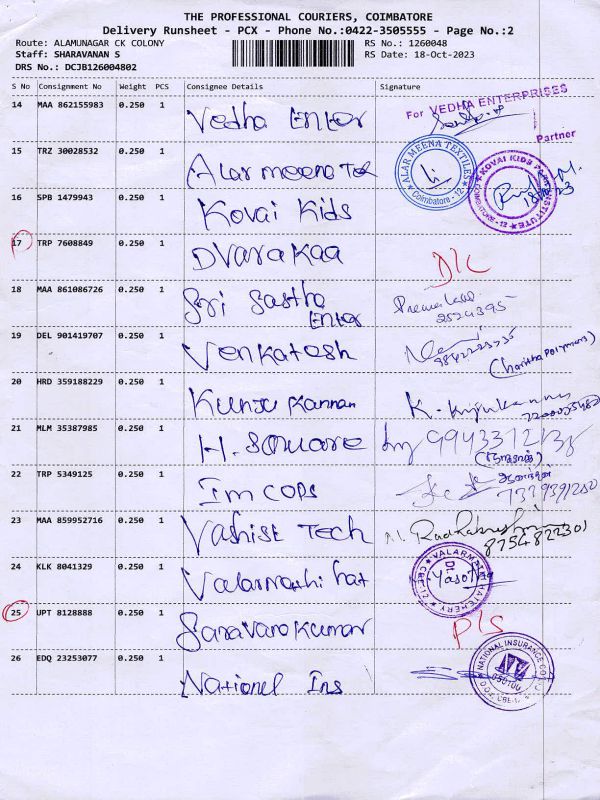 THE PROFESSIONAL COURIERS, COIMBATORE
Delivery Runsheet - PCX - Phone No.:0422-3505555 - Page No.:2
Route: ALAMUNAGAR CK COLONY RS No.: 1260048
Staff: SHARAVANAN S RS Date: 18-Oct-2023
DRS No.: DCJB126004802
S No Consignment No Weight PCS Consignee Details Signature
14 MAA 862155983 0.250 1 Vedha Enter For VEDHA ENTERPRISES
Partner
15 TRZ 30028532 0.250 1 Alar meena Tex ALAR MEENA TEXTILES Coimbatore - 12
16 SPB 1479943 0.250 1 Kovai Kids KOVAI KIDS INSTITUTE
17 TRP 7608849 0.250 1 Dvarakaa D/c
18 MAA 861086726 0.250 1 Sri Sastha Enter
2524395
19 DEL 901419707 0.250 1 Venkatesh
(Haritha Polymers)
20 HRD 359188229 0.250 1 Kunju Kannan K.
21 MLM 35387985 0.250 1 H. Square
22 TRP 5349125 0.250 1 Im cops
7339391250
23 MAA 859952716 0.250 1 Vashist Tech
8754822301
24 KLK 8041329 0.250 1 Valarmathi hat VALARMATHI HATCHERY CBE-12
25 UPT 8128888 0.250 1 Saravanakumar P/s
26 EDQ 23253077 0.250 1 National Ins NATIONAL INSURANCE CO. 050100